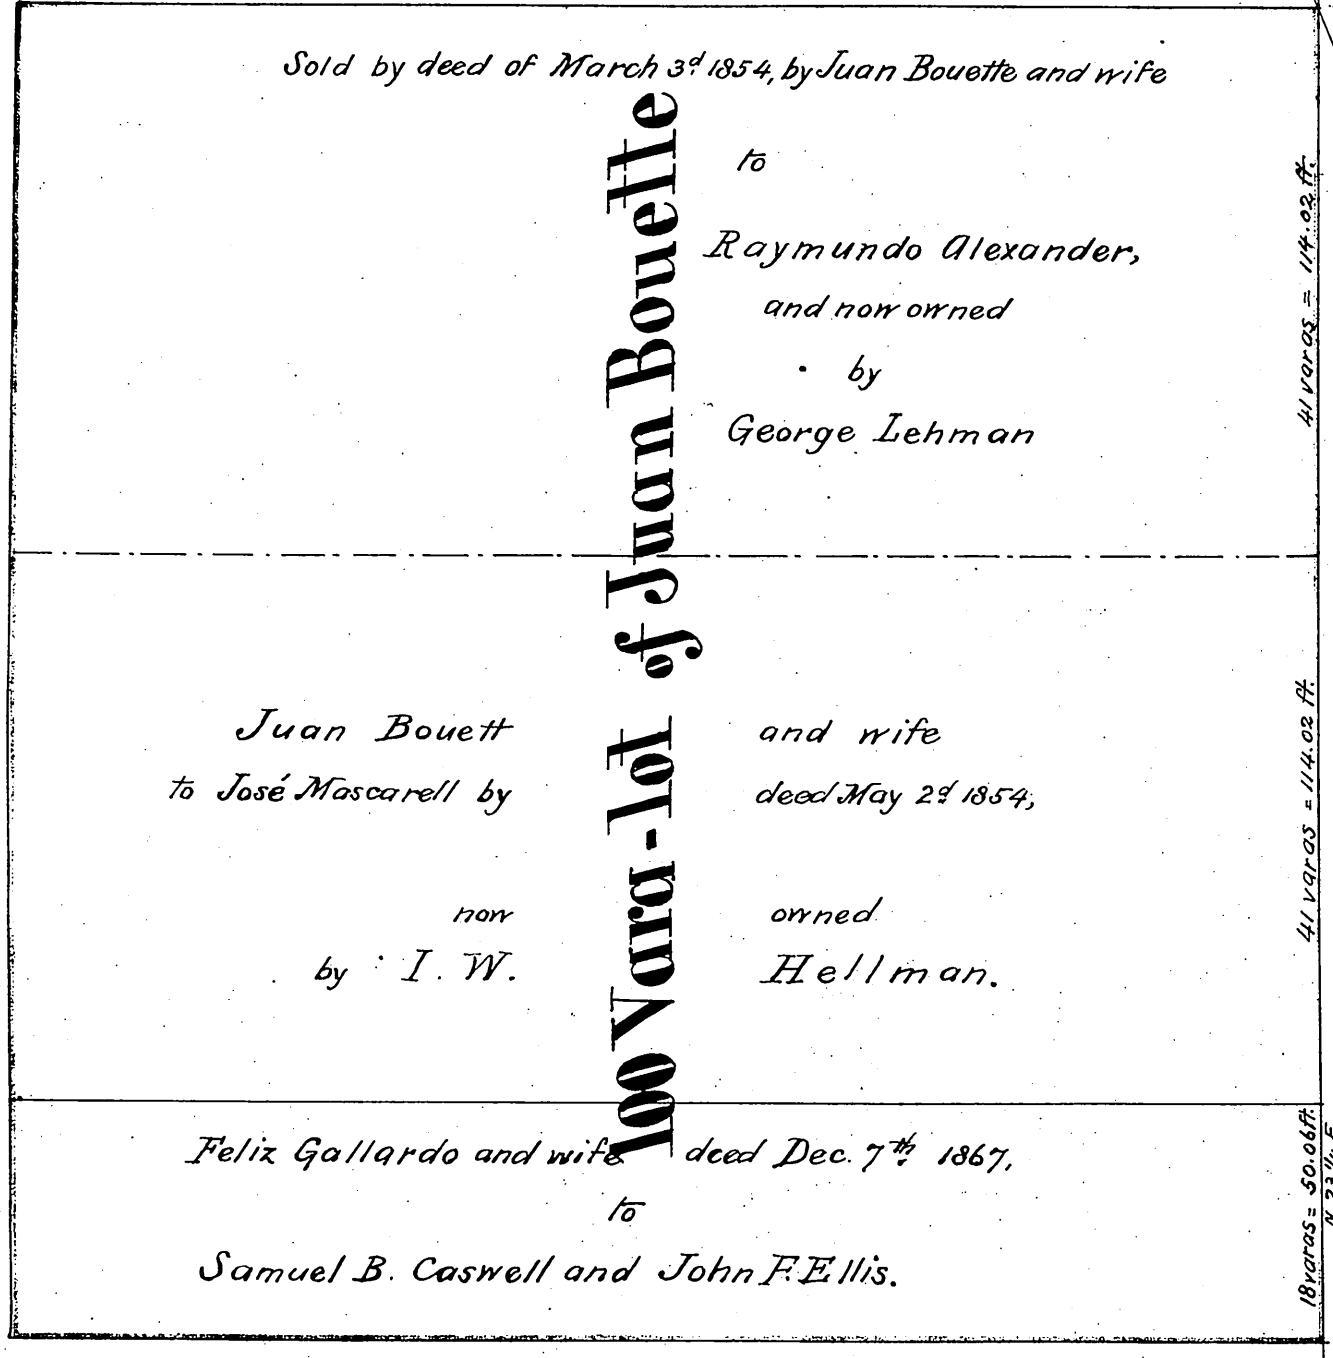 Sold by deed of March 3d 1854, by Juan Bouette and wife
to
Raymundo Alexander,
and now owned
by
George Lehman
41 varas = 114.02 ft.
100 Vara-lot of Juan Bouette
Juan Bouett and wife
to José Mascarell by deed May 2d 1854,
now owned
by I. W. Hellman.
41 varas = 114.02 ft.
Feliz Gallardo and wife deed Dec. 7th 1867,
to
Samuel B. Caswell and John F. Ellis.
18 varas = 50.06 ft.